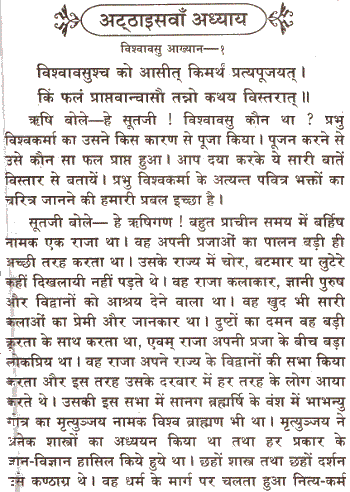 अट्ठाइसवाँ अध्याय
विश्वावसु आख्यान—१
विश्वावसुश्च को आसीत् किमर्थं प्रत्यपूजयत्।
किं फलं प्राप्तवान्चासौ तन्नो कथय विस्तरात्॥
ऋषि बोले—हे सूतजी ! विश्वावसु कौन था ? प्रभु
विश्वकर्मा का उसने किस कारण से पूजा किया। पूजन करने से
उसे कौन सा फल प्राप्त हुआ। आप दया करके ये सारी बातें
विस्तार से बतायें। प्रभु विश्वकर्मा के अत्यन्त पवित्र भक्तों का
चरित्र जानने की हमारी प्रबल इच्छा है।
सूतजी बोले— हे ऋषिगण ! बहुत प्राचीन समय में बर्हिष
नामक एक राजा था। वह अपनी प्रजाओं का पालन बड़ी ही
अच्छी तरह करता था। उसके राज्य में चोर, बटमार या लुटेरे
कहीं दिखलायी नहीं पड़ते थे। वह राजा कलाकार, ज्ञानी पुरुष
और विद्वानों को आश्रय देने वाला था। वह खुद भी सारी
कलाओं का प्रेमी और जानकार था। दुष्टों का दमन वह बड़ी
क्रूरता के साथ करता था, एवम् राजा अपनी प्रजा के बीच बड़ा
लोकप्रिय था। वह राजा अपने राज्य के विद्वानों की सभा किया
करता और इस तरह उसके दरबार में हर तरह के लोग आया
करते थे। उसकी इस सभा में सानग ब्रह्मर्षि के वंश में भाभन्यु
गोत्र का मृत्युञ्जय नामक विश्व ब्राह्मण भी था। मृत्युञ्जय ने
अनेक शास्त्रों का अध्ययन किया था तथा हर प्रकार के
ज्ञान-विज्ञान हासिल किये हुये था। छहों शास्त्र तथा छहों दर्शन
उसे कण्ठाग्र थे। वह धर्म के मार्ग पर चलता हुआ नित्य-कर्म